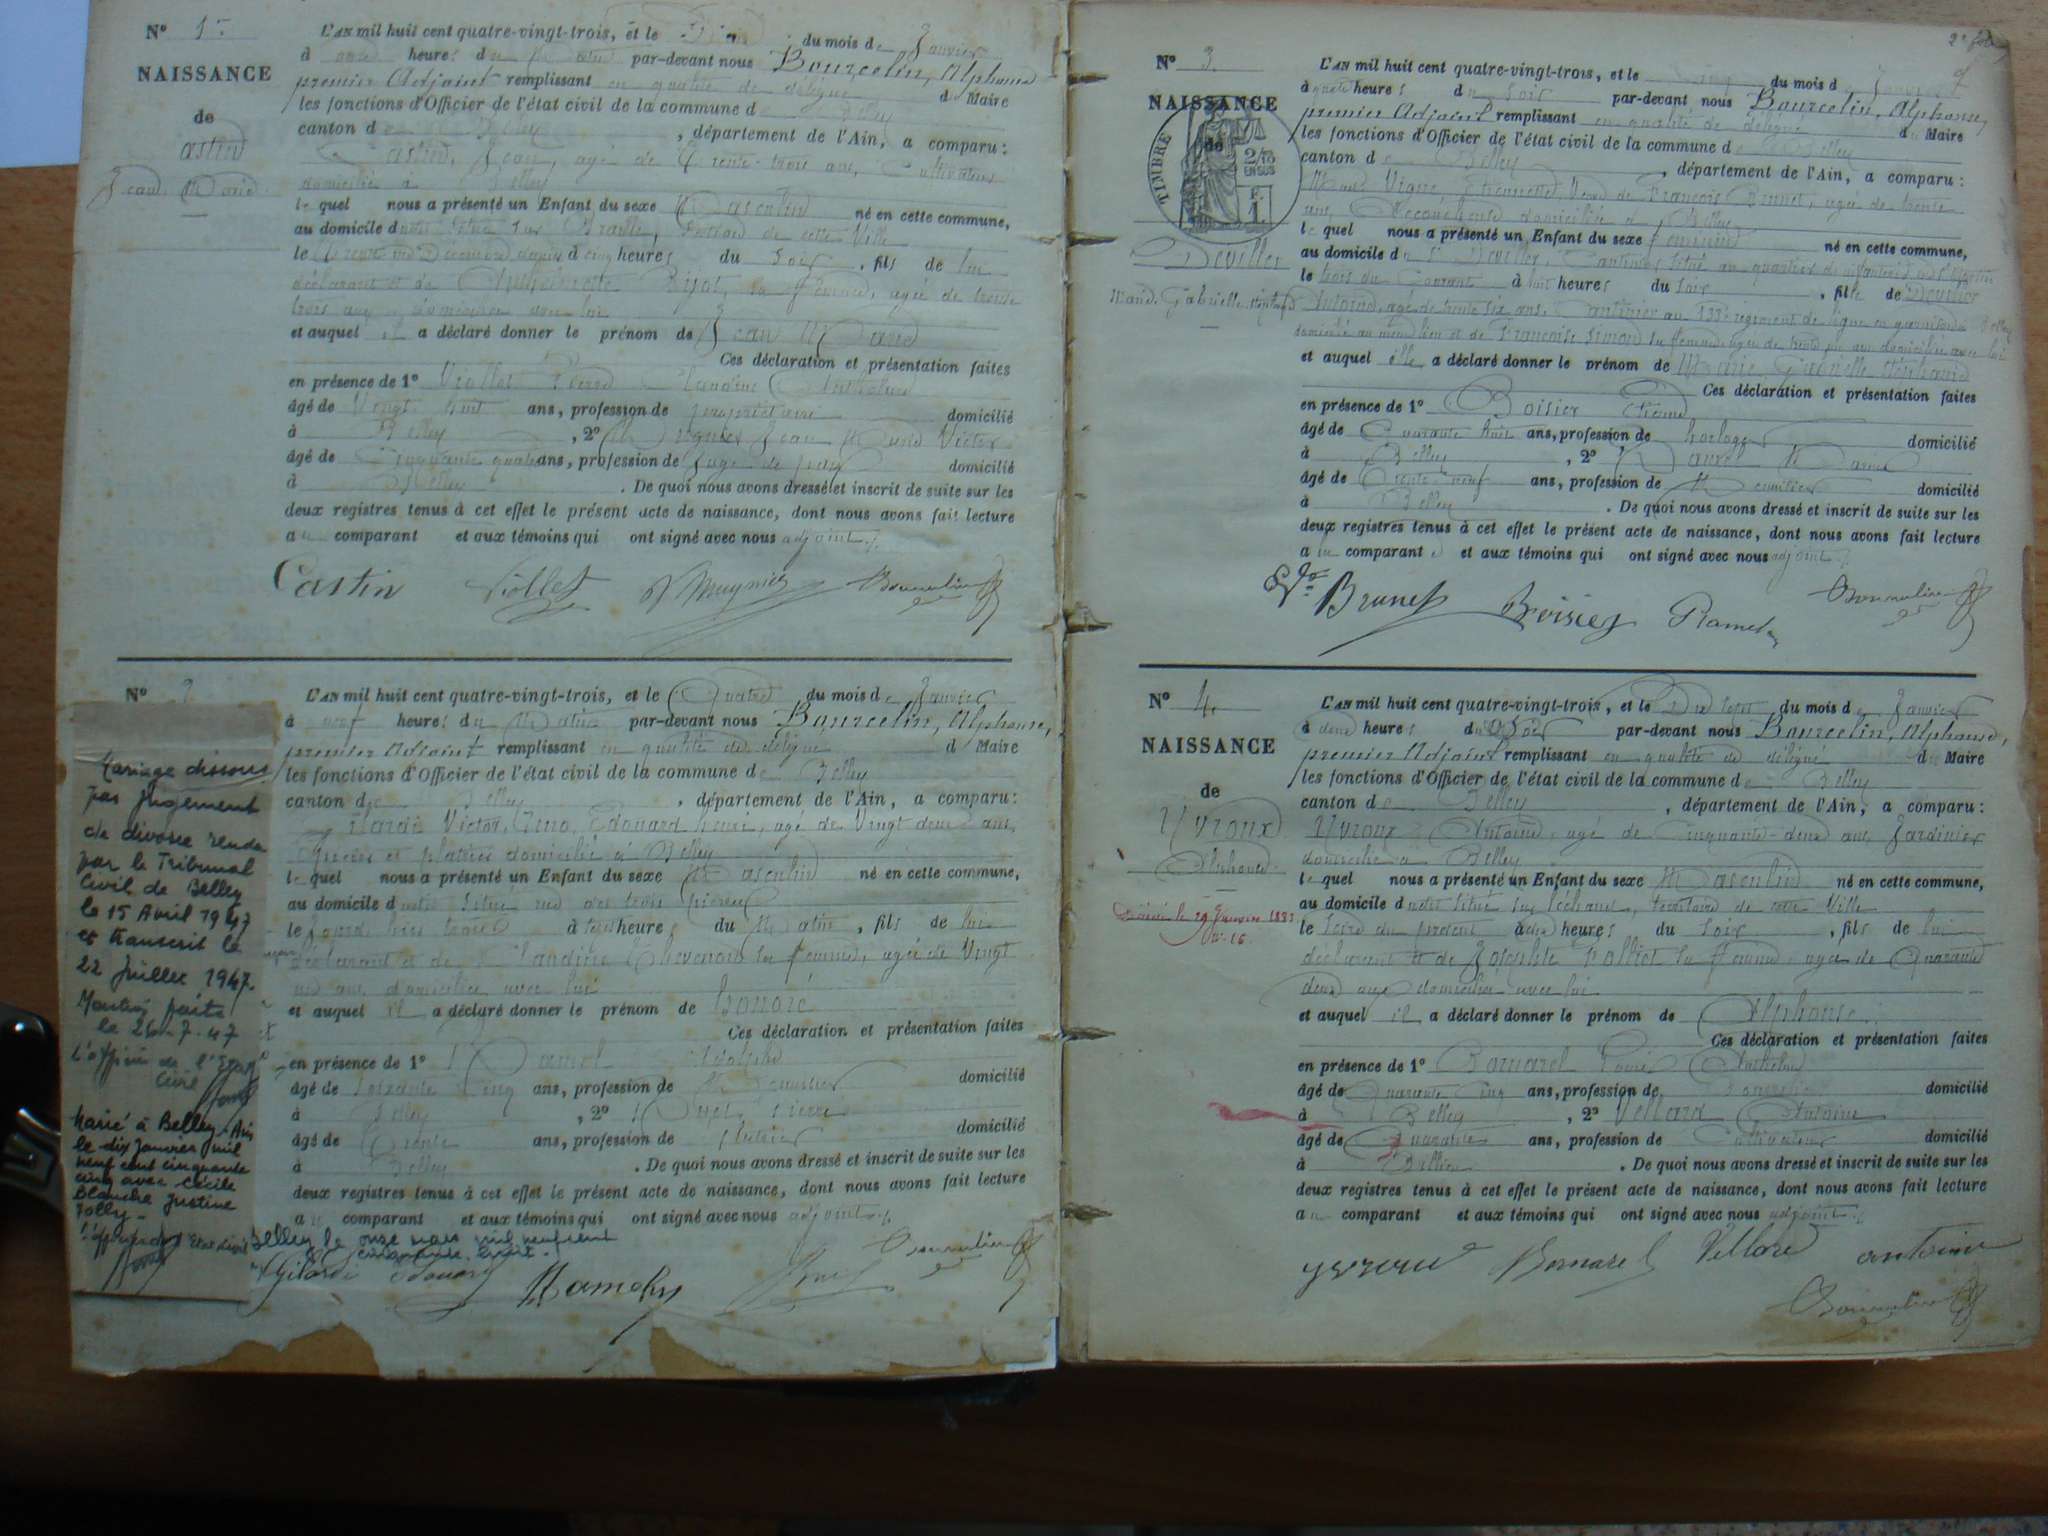 N° 1
NAISSANCE
de
Castin
Jean Marie
L'AN mil huit cent quatre-vingt-trois, et le du mois de Janvier
à onze heures du Matin par-devant nous Bourcelin, Alphonse
premier Adjoint remplissant en qualité de délégué d Maire
les fonctions d'Officier de l'état civil de la commune de Belley
canton de Belley, département de l'Ain, a comparu :
Castin, Jean, agé de trente-trois ans, Cultivateur
domicilié à Belley
lequel nous a présenté un Enfant du sexe Masculin né en cette commune,
au domicile de cette Ville
le trente un Décembre dernier à cinq heures du Soir, fils de lui
déclarant et de sa femme, agée de trente
trois ans, domiciliée avec lui
et auquel il a déclaré donner le prénom de Jean Marie
Ces déclaration et présentation faites
en présence de 1° Viollet Pierre Anthelme
âgé de Vingt huit ans, profession de propriétaire domicilié
à Belley, 2° Jean Marie Victor
âgé de Cinquante quatre ans, profession de Juge de paix domicilié
à Belley. De quoi nous avons dressé et inscrit de suite sur les
deux registres tenus à cet effet le présent acte de naissance, dont nous avons fait lecture
au comparant et aux témoins qui ont signé avec nous adjoint
Castin Viollet Bourcelin
N° 2
L'AN mil huit cent quatre-vingt-trois, et le Quatre du mois de Janvier
à neuf heures du Matin par-devant nous Bourcelin, Alphonse,
premier Adjoint remplissant en qualité de délégué d Maire
les fonctions d'Officier de l'état civil de la commune de Belley
canton de Belley, département de l'Ain, a comparu :
Victor, Edouard Henri, agé de Vingt deux ans,
et platrier domicilié à Belley
lequel nous a présenté un Enfant du sexe Masculin né en cette commune,
au domicile de notre Ville rue des trois
le jour à trois heures du Matin, fils de lui
déclarant et de Claudine Thevenon sa femme, agée de Vingt
un ans domiciliée avec lui
et auquel il a déclaré donner le prénom de honoré
Ces déclaration et présentation faites
en présence de 1° Ramel
âgé de Soixante Cinq ans, profession de Menuisier domicilié
à Belley, 2° Pierre
âgé de Trente ans, profession de domicilié
à Belley. De quoi nous avons dressé et inscrit de suite sur les
deux registres tenus à cet effet le présent acte de naissance, dont nous avons fait lecture
au comparant et aux témoins qui ont signé avec nous adjoint
Mariage dissous
par jugement
de divorce rendu
par le Tribunal
Civil de Belley
le 15 Avril 1947
et transcrit le
22 Juillet 1947.
Mention faite
le 26-7-47
L'officier de l'Etat
Civil
Marié à Belley-Ain
le dix Janvier mil
neuf cent cinquante
cinq avec Cécile
Blanche Justine
Jolly
l'officier de l'état civil
Belley le onze mars mil neuf cent
cinquante huit.
Gilardi Edouard Ramel Bourcelin
2e fol
N° 3
NAISSANCE
de
TIMBRE
Deviller
Marie Gabrielle Stéphanie
L'AN mil huit cent quatre-vingt-trois, et le cinq du mois de Janvier
à quatre heures du Soir par-devant nous Bourcelin, Alphonse,
premier Adjoint remplissant en qualité de délégué du Maire
les fonctions d'Officier de l'état civil de la commune de Belley
canton de Belley, département de l'Ain, a comparu :
Vigne, Etiennette Veuve de François Brunet, agée de trente
ans, Accoucheuse domiciliée à Belley
lequel nous a présenté un Enfant du sexe féminin né en cette commune,
au domicile du Sr Deviller, Cantinier situé au quartier
le trois du Courant à huit heures du Soir, fille de Deviller
Antoine, agé de trente six ans, Cantinier au 133e régiment de ligne en garnison à Belley
domicilié au même lieu et de Françoise Simon sa femme agée de trente ans domiciliée avec lui
et auquel elle a déclaré donner le prénom de Marie, Gabrielle Stéphanie
Ces déclaration et présentation faites
en présence de 1° Boisier
âgé de Quarante huit ans, profession de horloger domicilié
à Belley, 2° Ramel
âgé de trente neuf ans, profession de Menuisier domicilié
à Belley. De quoi nous avons dressé et inscrit de suite sur les
deux registres tenus à cet effet le présent acte de naissance, dont nous avons fait lecture
a la comparante et aux témoins qui ont signé avec nous adjoint
Brunet Boisier Ramel Bourcelin
N° 4
NAISSANCE
de
Yvroux
Alphonse
Décédé le 29 Janvier 1883
N° 16
L'AN mil huit cent quatre-vingt-trois, et le Dix Sept du mois de Janvier
à deux heures du Soir par-devant nous Bourcelin, Alphonse,
premier Adjoint remplissant en qualité de délégué du Maire
les fonctions d'Officier de l'état civil de la commune de Belley
canton de Belley, département de l'Ain, a comparu :
Yvroux Antoine, agé de Cinquante-deux ans Jardinier
domicilié à Belley
lequel nous a présenté un Enfant du sexe Masculin né en cette commune,
au domicile de notre situé sur l'échaud, territoire de cette Ville
le Seize du présent à heures du Soir, fils de lui
déclarant et de Josephte sa femme, agée de Quarante
deux ans domiciliée avec lui
et auquel il a déclaré donner le prénom de Alphonse.
Ces déclaration et présentation faites
en présence de 1° Bornarel Louis Anthelme
âgé de Quarante Cinq ans, profession de domicilié
à Belley, 2° Vellard Antoine
âgé de Quarante ans, profession de Cultivateur domicilié
à Billieu. De quoi nous avons dressé et inscrit de suite sur les
deux registres tenus à cet effet le présent acte de naissance, dont nous avons fait lecture
au comparant et aux témoins qui ont signé avec nous adjoint
Bornarel Vellard antoine
Bourcelin